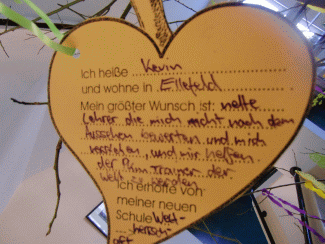 Ich heiße Kevin
und wohne in Ellefeld
Mein größter Wunsch ist: nette
Lehrer die mich nicht nach dem
Aussehen bewerten und mich
verstehen, und mir helfen
der Trainer der
Welt zu werden
Ich erhoffe von
meiner neuen
Schule Welt-
herrsch-
aft